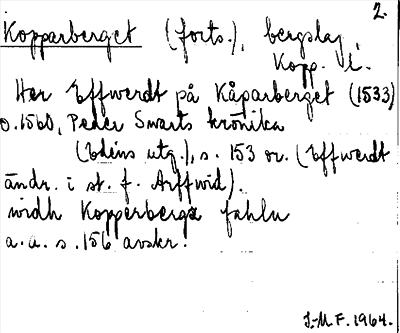 2.
Kopparberget (forts.), bergslag
Kopp. l.
Her Effwerdt på Kåparberget (1533)
o. 1560, Peder Swarts krönika
(Edéns utg.), s. 153 or. (Effwerdt
ändr. i st. f. Arffwid).
widh Kopperbergz fahlu
a. a. s. 156 avskr.
J.-M.F. 1964.